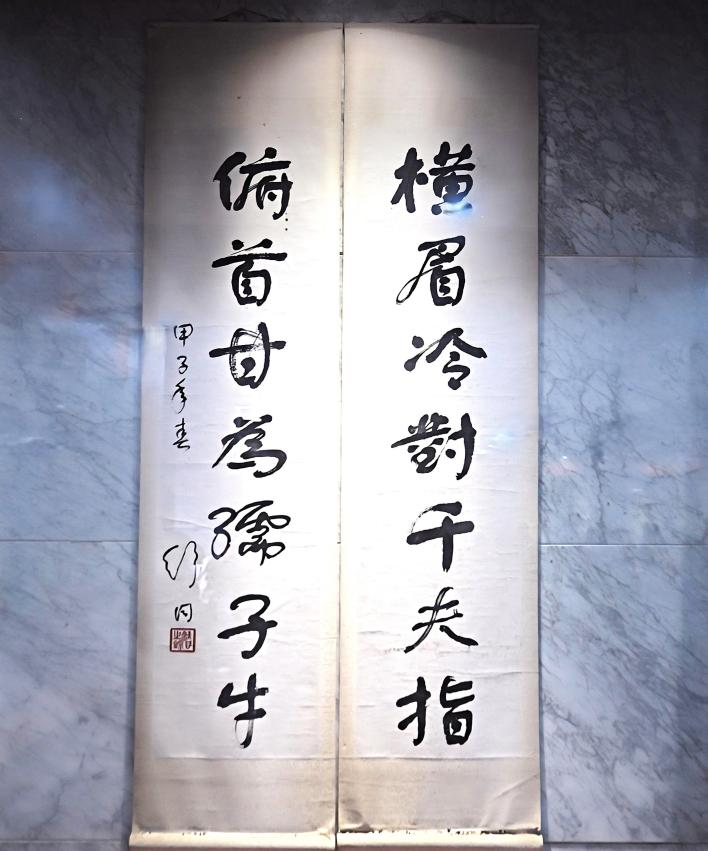 橫眉冷對千夫指
俯首甘為孺子牛
甲子年春
舒同